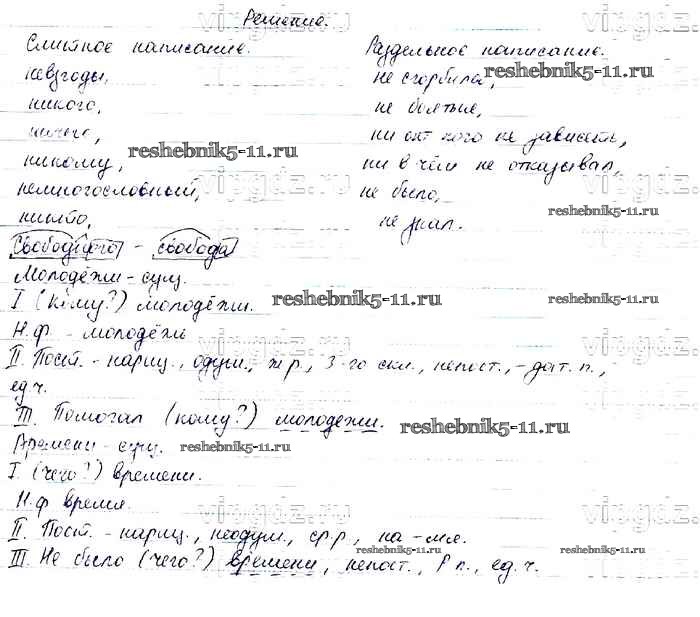 Решение.
Слитное написание. Раздельное написание.
невзгоды, не сгорбила,
никого, не болтые,
ничего, ни от кого не зависеть,
никому, ни в чём не отказывал,
немногословный, не было,
никто, не знал.
- свобода
Молодёжи - сущ.
I (кому?) молодёжи.
Н.ф. - молодёжь
II. Пост. - нариц., одуш., ж.р., 3-го скл., непост., - дат. п.,
ед.ч.
III. Помогал (кому?) молодежи.
Времени - сущ.
I. (чего?) времени.
Н.ф время.
II. Пост. - нариц., неодуш., ср.р, на -мя.
III. Не было (чего?) времени, непост., Р п., ед. ч.
reshebnik5-11.ru
reshebnik5-11.ru
reshebnik5-11.ru
reshebnik5-11.ru
reshebnik5-11.ru
reshebnik5-11.ru
reshebnik5-11.ru
reshebnik5-11.ru
reshebnik5-11.ru